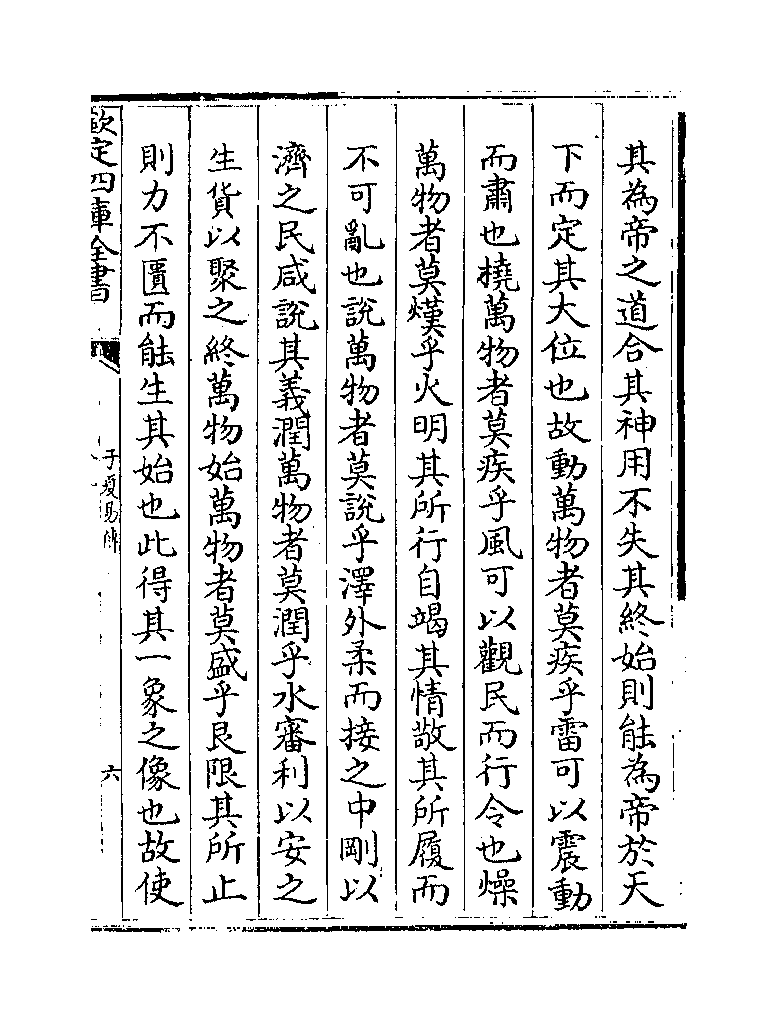 其為帝之道合其神用不失其終始則能為帝於天
下而定其大位也故動萬物者莫疾乎雷可以震動
而肅也橈萬物者莫疾乎風可以觀民而行令也燥
萬物者莫熯乎火明其所行自竭其情敬其所履而
不可亂也說萬物者莫說乎澤外柔而接之中剛以
濟之民咸說其義潤萬物者莫潤乎水審利以安之
生貨以聚之終萬物始萬物者莫盛乎艮限其所止
則力不匱而能生其始也此得其一象之像也故使
欽定四庫全書
子夏易傳
六